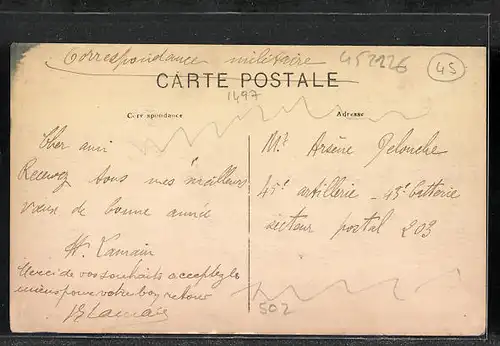 Correspondance militaire
452226
45
CARTE POSTALE
1497
Correspondance
Adresse
Cher ami
Recevez tous mes meilleurs
vœux de bonne année
H. Lamain
Merci de vos souhaits acceptez les
miens pour votre bon retour
Mr. Arsène Delouche
45e artillerie - 43e batterie
secteur postal 203
502